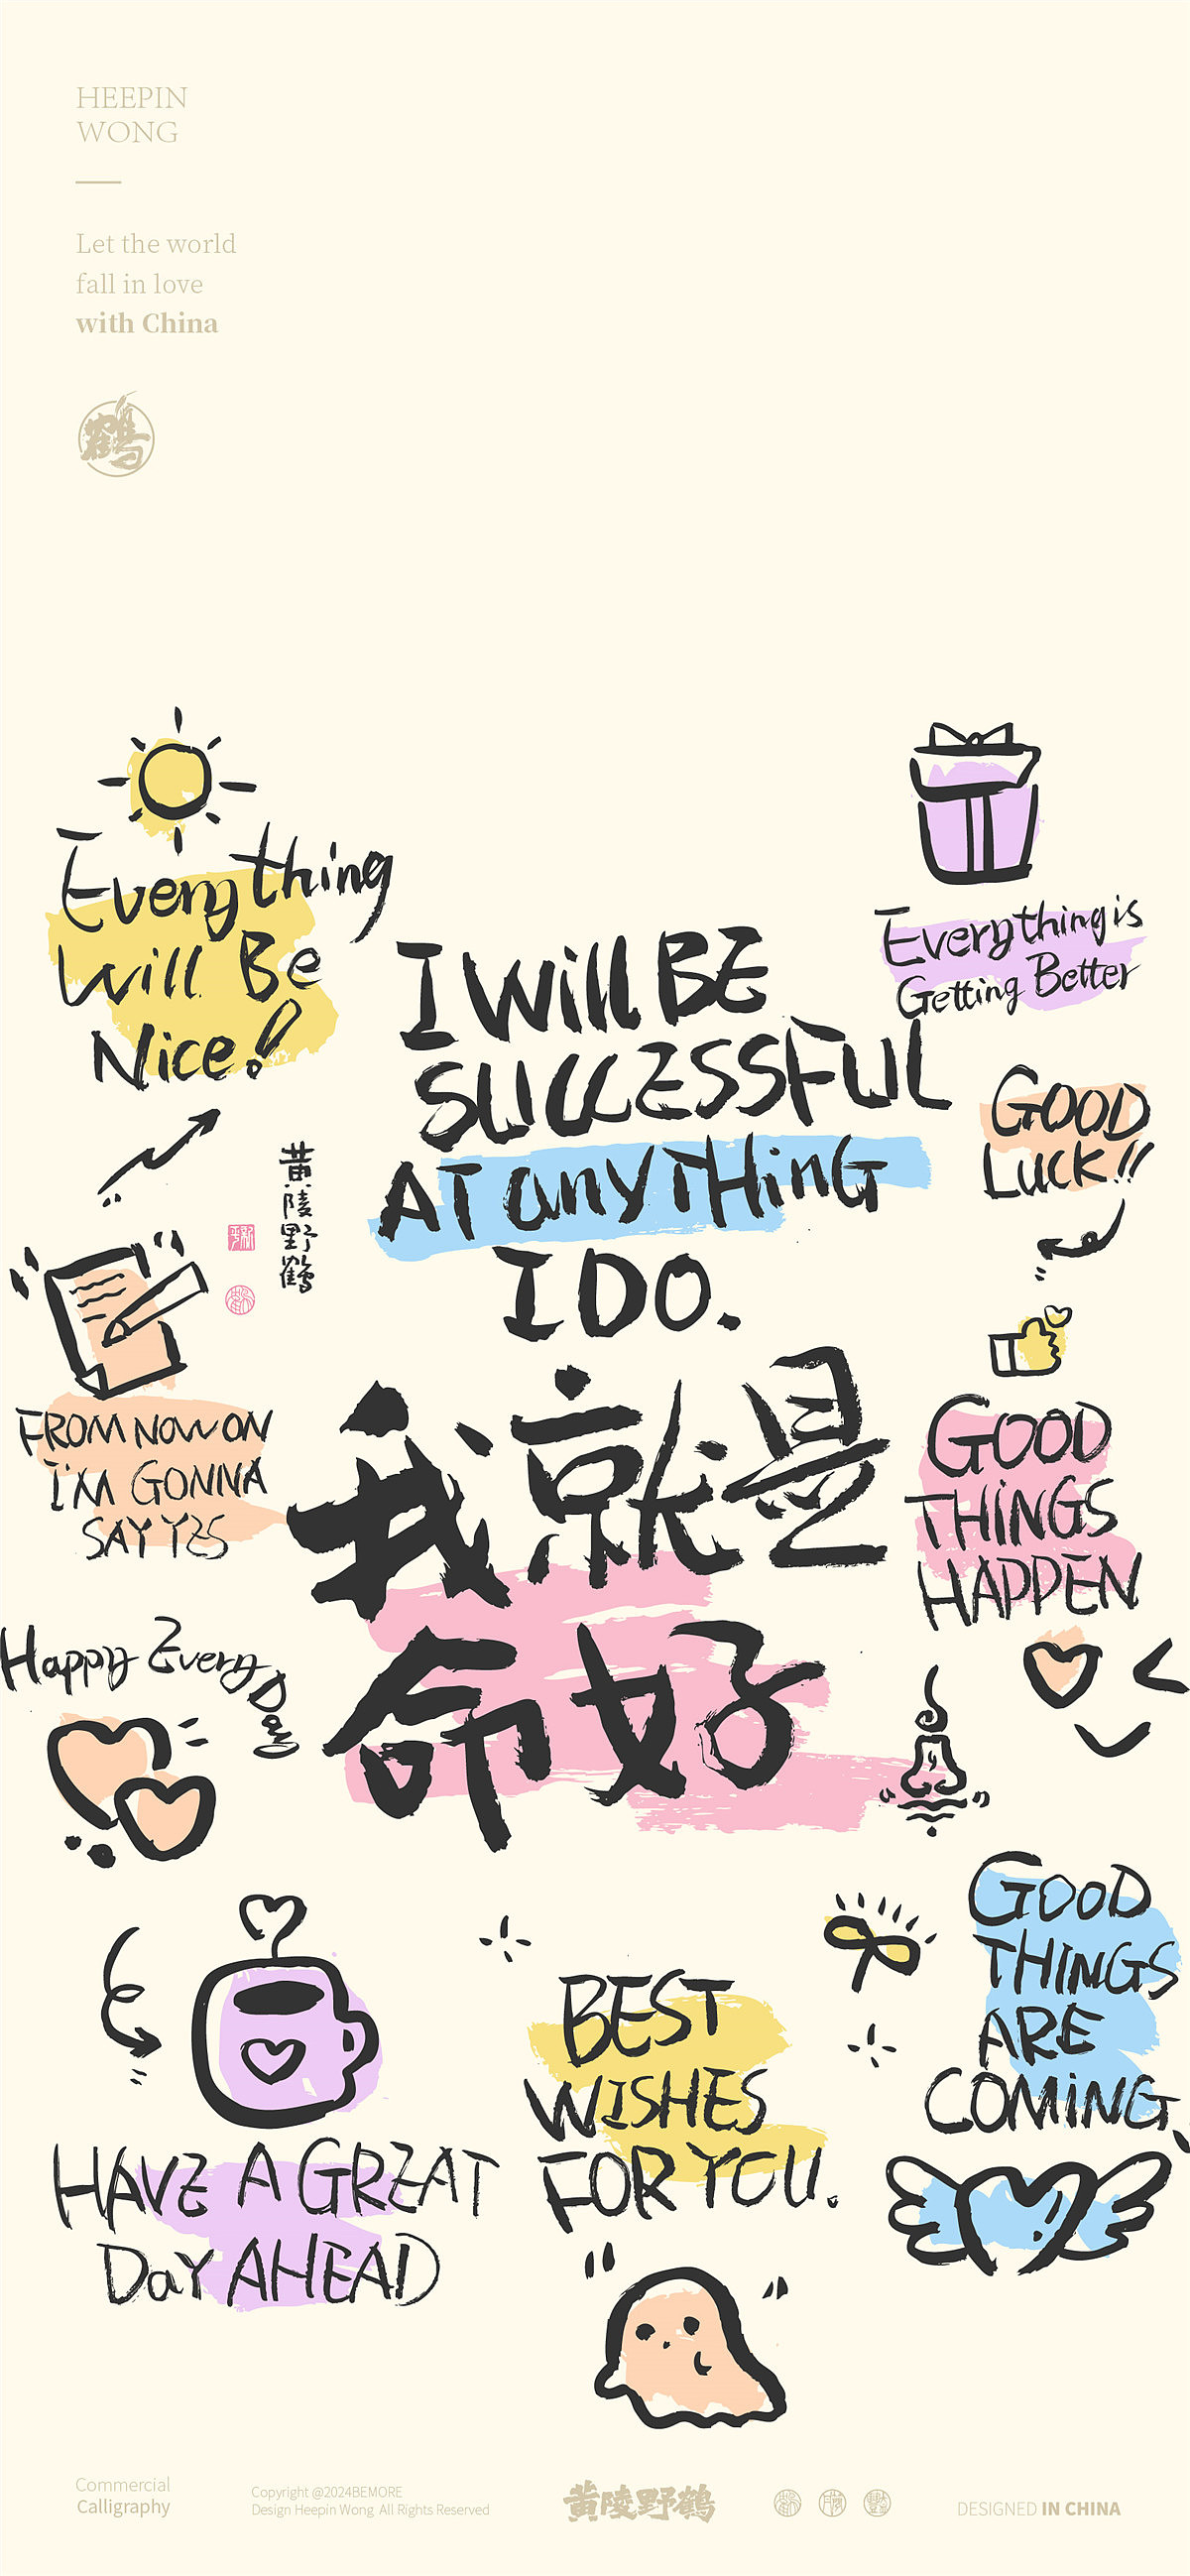 HEEPIN
WONG
Let the world
fall in love
with China
鶴
Everything
Will Be
Nice!
I Will BE
SUCCESSFUL
AT anyTHinG
I DO.
Everything is
Getting Better
GOOD
LUCK!!
黄陵野鶴
FROM NOW ON
I'M GONNA
SAY YES
我就是
命好
GOOD
THiNGS
HAPPEN
Happy Every Day
GOOD
THINGS
ARE
COMiNG.
BEST
WISHES
FOR YOU.
HAVE A GREAT
DaY AHEAD
Commercial
Calligraphy
Copyright @2024BEMORE
Design Heepin Wong All Rights Reserved
黄陵野鶴
DESIGNED IN CHINA